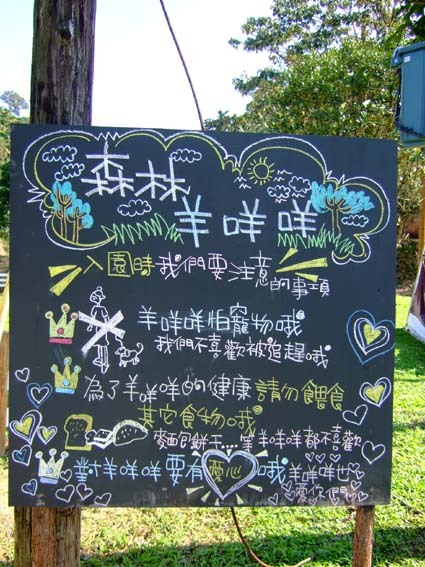 森林
羊咩咩
入園時我們要注意
的事項
羊咩咩怕寵物哦
我們不喜歡被追趕哦
為了羊咩咩的健康 請勿餵食
其它食物哦
麵包餅干...等羊咩咩都不喜歡
對羊咩咩要有愛心哦 羊咩咩也
愛你們